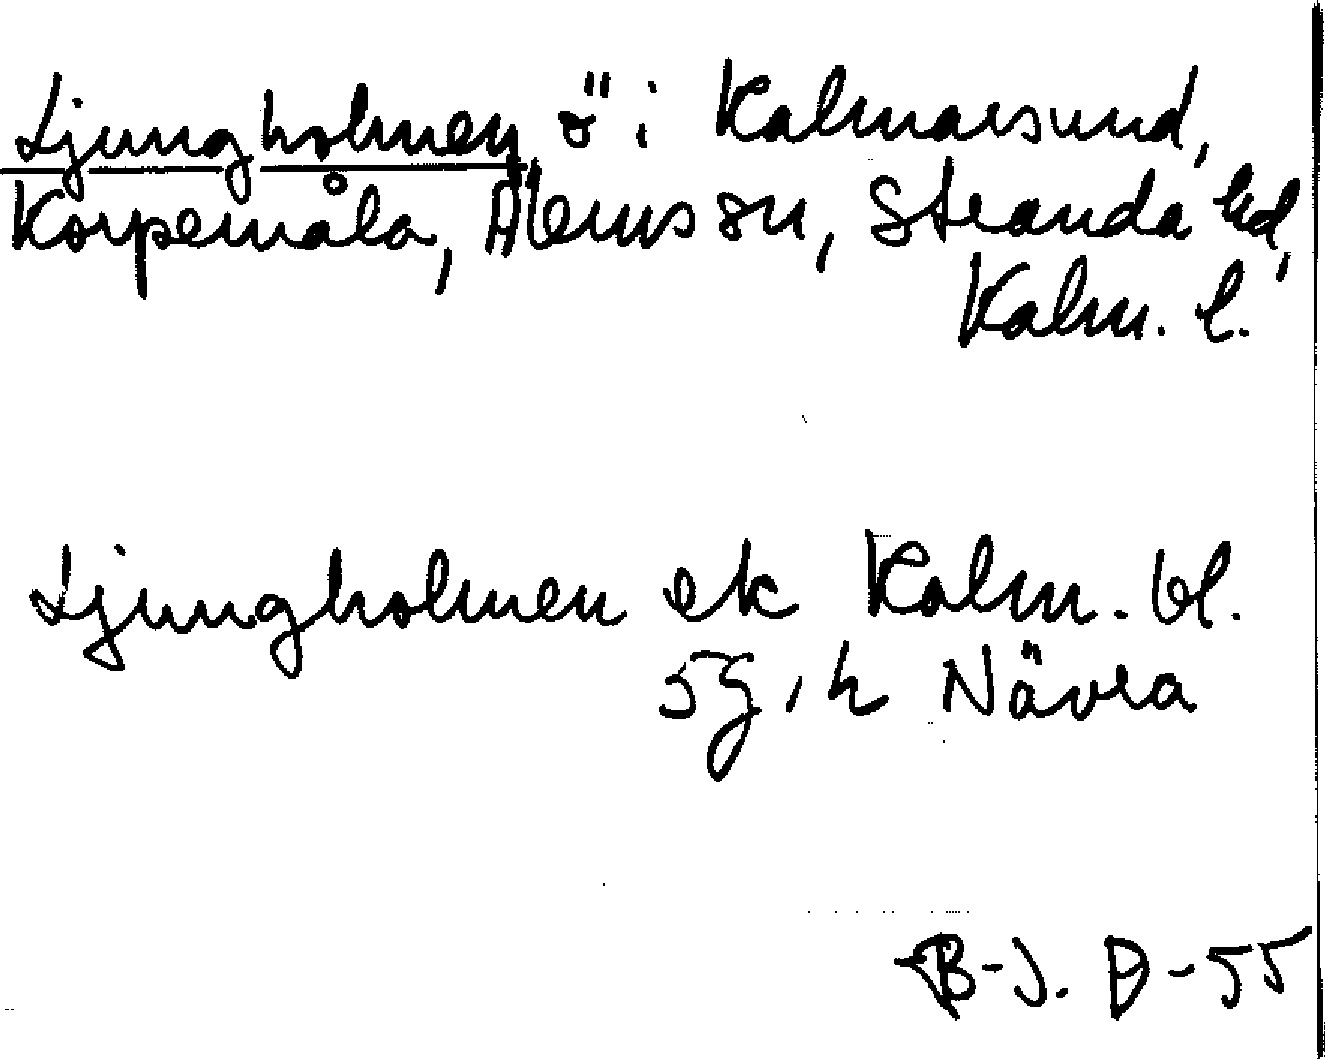 Ljungholmen, ö i Kalmarsund,
Korpemåla, Ålems sn, Stranda hd,
Kalm. l.
Ljungholmen ek Kalm. bl.
5g, h Nävra
B-J. D-55